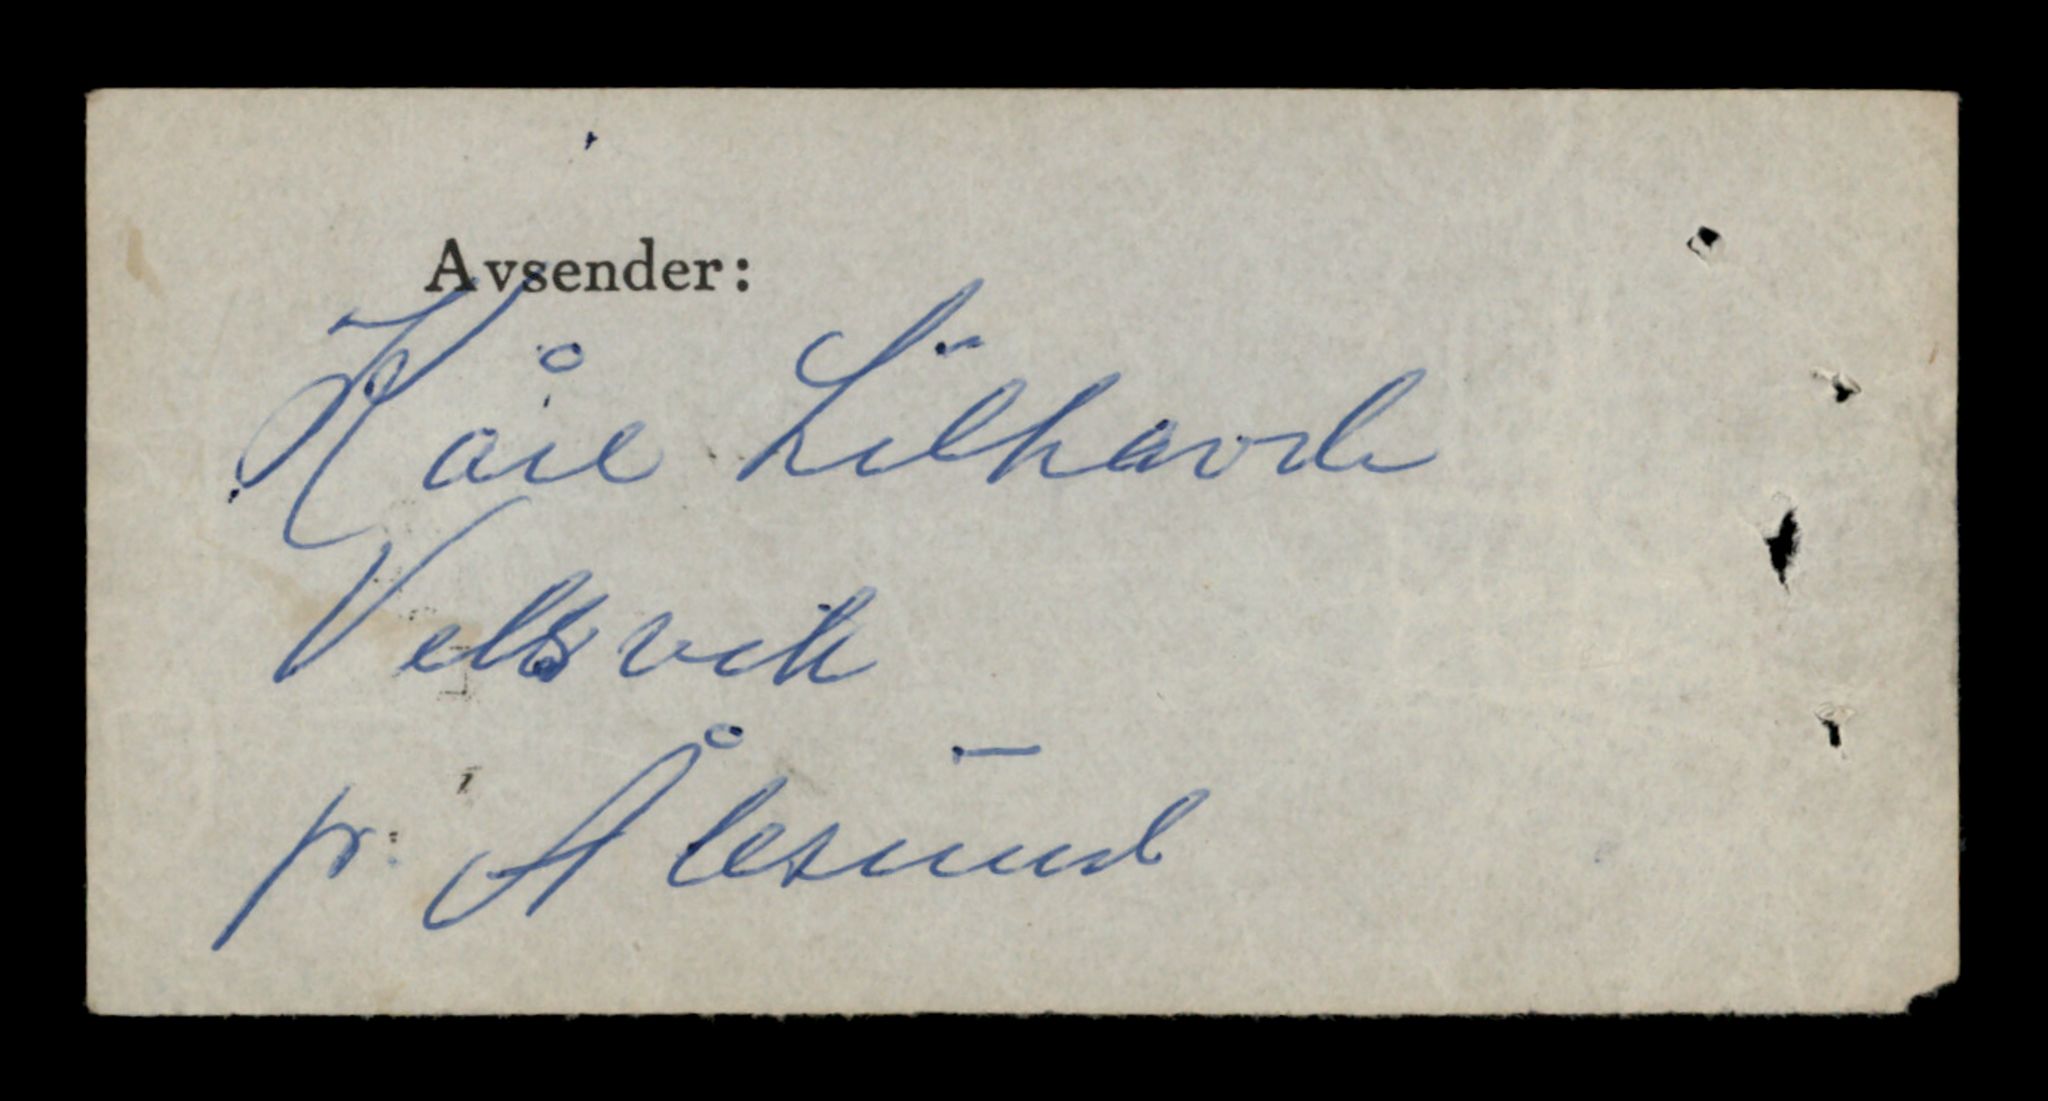 Avsender:
Kåre Lilhavde
Velsvik
pr. Ålesund